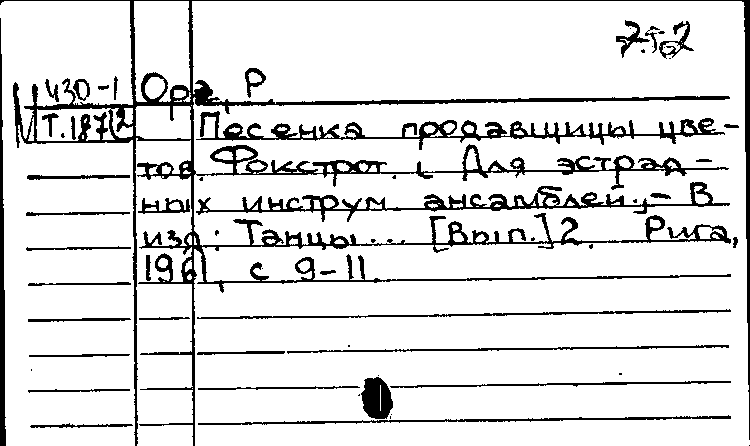 М 430-1 Орг, Р.
Т.187/2 Песенка продавщицы цве-
тов. Фокстрот. [Для эстрад-
ных инструм. ансамблей]. - В
изд: Танцы... [Вып.] 2. Рига,
1961, с 9-11.